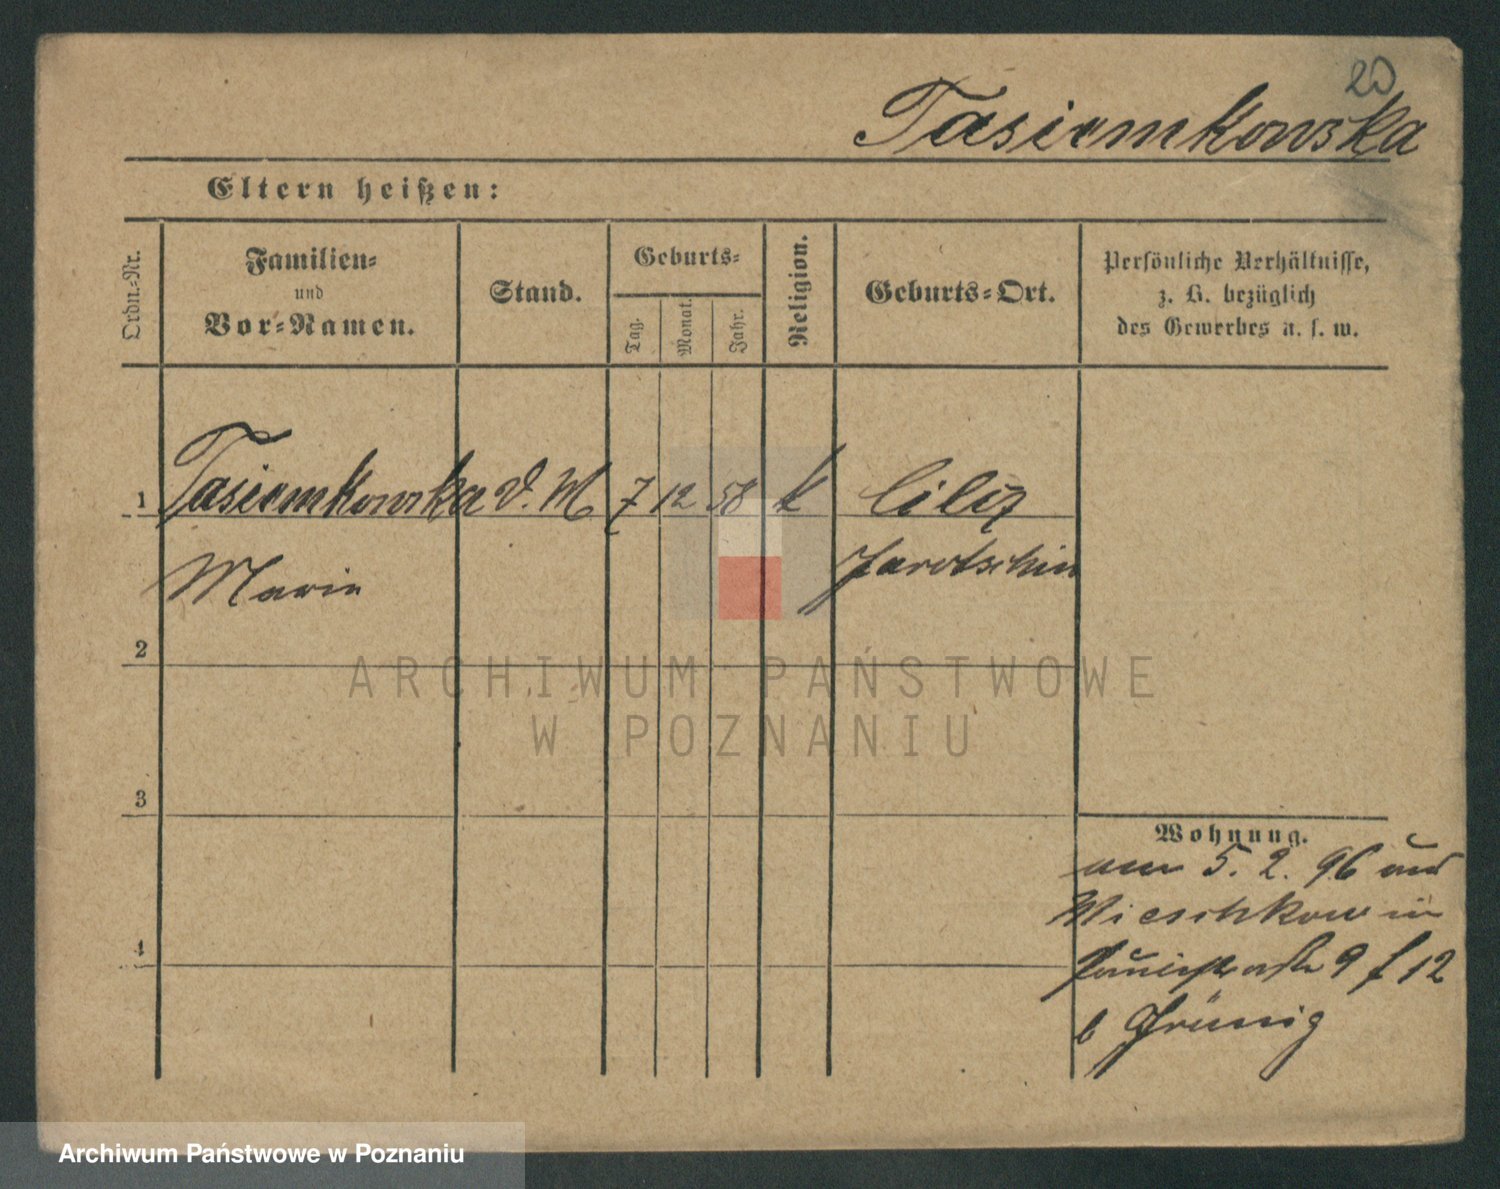 20
Tasiemkowska
Eltern heißen:
Ordn.-Nr.
Familien-
und
Vor-Namen.
Stand.
Geburts-
Tag.
Monat.
Jahr.
Religion.
Geburts-Ort.
Persönliche Verhältnisse,
z. B. bezüglich
des Gewerbes u. s. w.
1 Tasiemkowska d. M 7 12 58 k Cilcz
Marie Jarotschin
2
ARCHIWUM PAŃSTWOWE
W POZNANIU
3
Wohnung.
am 5. 2. 96 aus
Wieschkowin
9 f 12
b Grünig
4
Archiwum Państwowe w Poznaniu